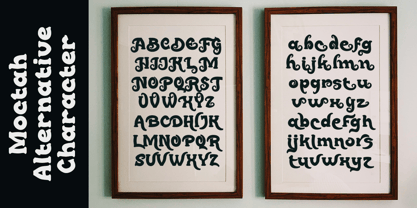 Moctah
Alternative
Character
ABCDEFG
HIJKLM
NOPQRST
UVWXYZ
ABCDHIJK
LMNOPQR
SUVWXYZ
abcdefg
hijklmn
opqrstu
vwxyz
abcdefgh
ijklmnors
tuvwxyz